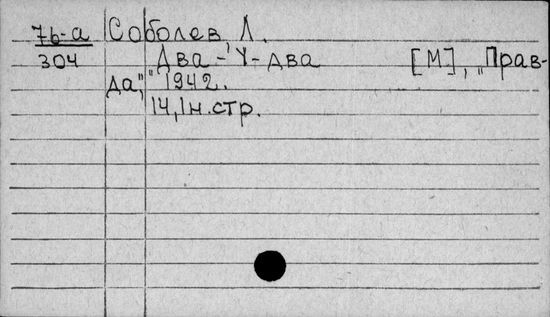 7б-а Соболев Л.
304 Два-'У-два [М], „Прав-
да," 1942.
14,1н.стр.